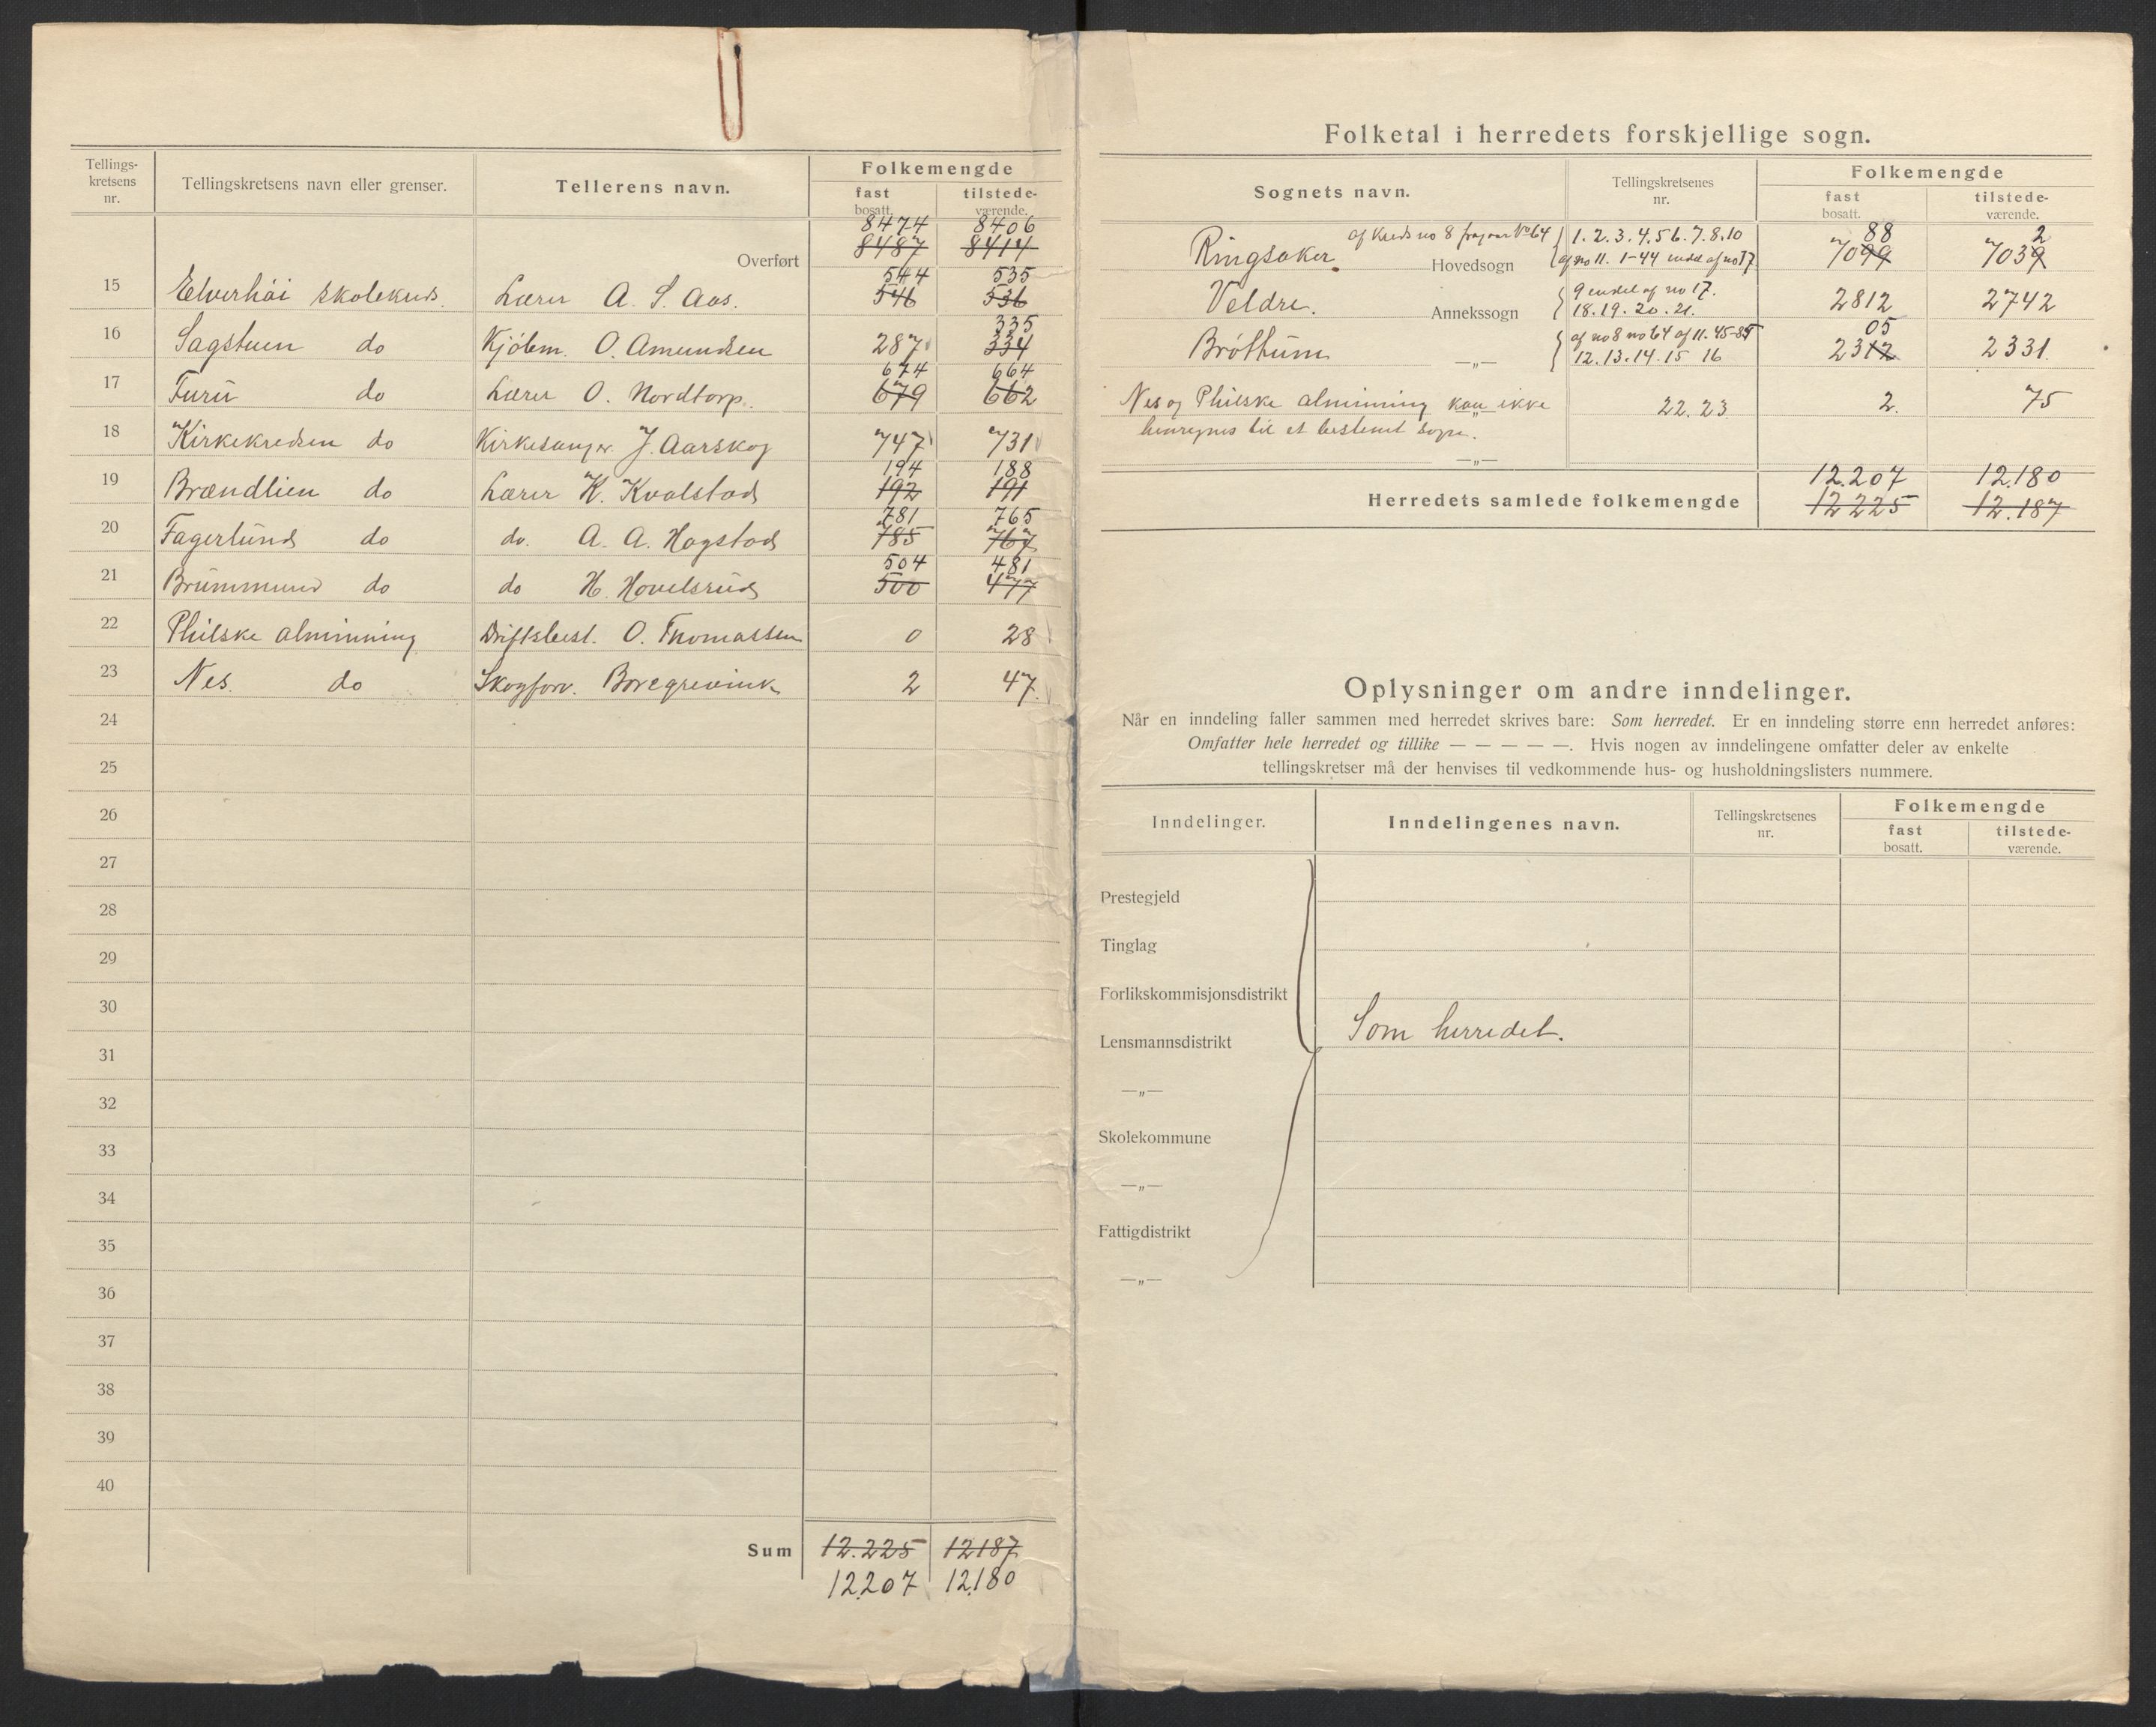 Tellings-
kretsens
nr.
Tellingskretsens navn eller grenser.
Tellerens navn.
Folkemengde
fast
bosatt.
tilstede-
værende.
8474 8406
Overført 8487 8414
544 535
15 Elverhöi skolekreds. Lærer A. S. Aas. 546 536
335
16 Sagstuen do Kjöbm. O. Amundsen 287 334
674 664
17 Furu do Lærer O. Nordtorp. 679 662
18 Kirkekredsen do Kirkesanger J. Aarskog 747 731
194 188
19 Brændlien do Lærer K. Kvalstad 192 191
781 765
20 Fagerlund do do. A. A. Hagstad 785 767
504 481
21 Brummund do do H. Hovelsrud 500 477
22 Philske alminning Driftsbest. O. Thomassen 0 28
23 Nes. do Skogforv. Borcgrevink 2 47.
24
25
26
27
28
29
30
31
32
33
34
35
36
37
38
39
40
Sum 12.225 12187
12207 12180
Folketal i herredets forskjellige sogn.
Sognets navn.
Tellingskretsenes
nr.
Folkemengde
fast
bosatt.
tilstede-
værende.
af Kreds no 8 No 64 1. 2. 3. 4. 5 6. 7. 8. 10 88 2
Ringsaker Hovedsogn af no 11. 1-44 endel af no 17. 7099 7039
Veldre. Annekssogn 9 endel af no 17. 2812 2742
18. 19. 20. 21.
af no 8 no 64 af 11. 45-85 05
Bröttum —„— 12. 13. 14. 15 16 2312 2331.
Nes og Philske alminning kan ikke 22. 23 2. 75
henregnes til et bestemt sogn.
—„—
12.207 12.180
Herredets samlede folkemengde 12225 12.187
Oplysninger om andre inndelinger.
Når en inndeling faller sammen med herredet skrives bare: Som herredet. Er en inndeling større enn herredet anføres:
Omfatter hele herredet og tillike — — — — —. Hvis nogen av inndelingene omfatter deler av enkelte
tellingskretser må der henvises til vedkommende hus- og husholdningslisters nummere.
Inndelinger.
Inndelingenes navn.
Tellingskretsenes
nr.
Folkemengde
fast
bosatt.
tilstede-
værende.
Prestegjeld
Tinglag
Forlikskommisjonsdistrikt
Som herredet.
Lensmannsdistrikt
—„—
Skolekommune
—„—
Fattigdistrikt
—„—